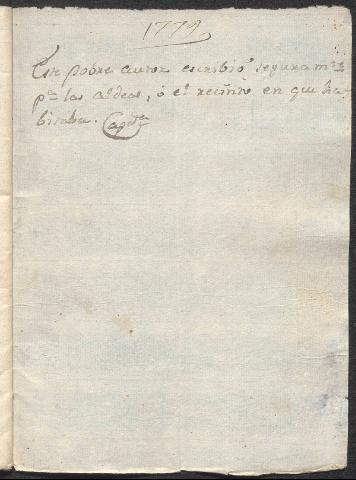 1779
Este pobre autor escribió seguram.te
p.a las aldeas, ó el recinto en que ha-
bitaba.